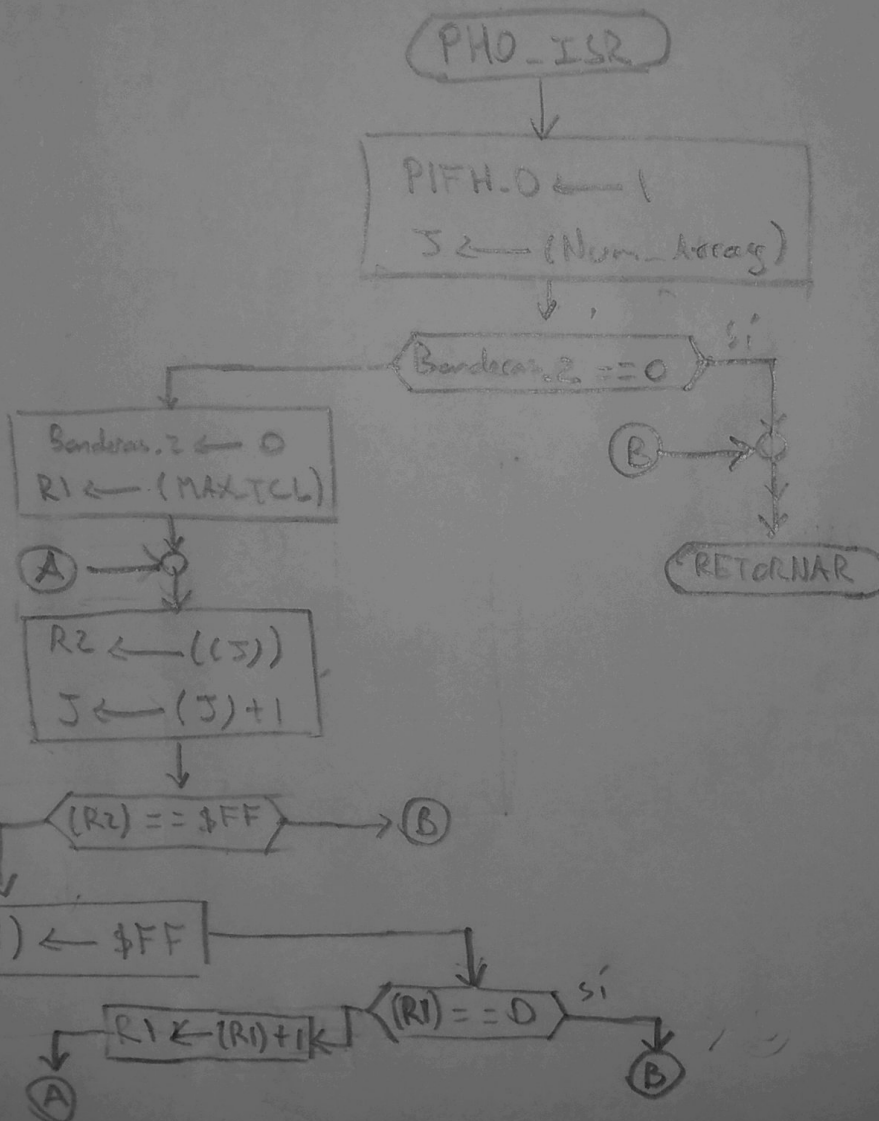 PH0_ISR
PIFH.0 ← 1
J ← (Num_Array)
Banderas.2 == 0
sí
Banderas.2 ← 0
R1 ← (MAX_TCL)
B
A
RETORNAR
R2 ← ((J))
J ← (J)+1
(R2) == $FF
B
) ← $FF
(R1) == 0
sí
R1 ← (R1)+1
A
B